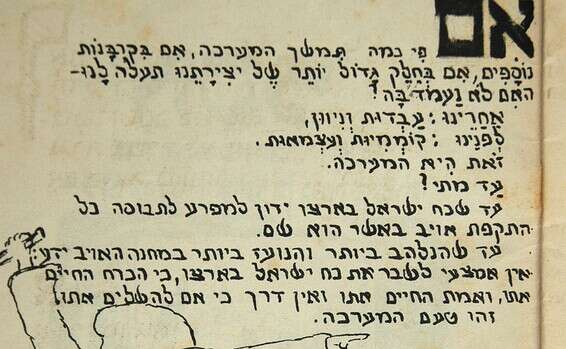 אם פי כמה תמשך המערכה, אִם בְּקָרְבָּנוֹת
נוֹסָפִים, אִם בְּחֵלֶק גָּדוֹל יוֹתֵר שֶׁל יְצִירָתֵנוּ תעלה לָנוּ-
האִם לֹא נַעֲמוֹד בָּהּ?
אַחֲרֵינוּ: עַבְדוּת וְנִיווּן,
לְפָנֵינוּ: קוֹמְמִיּוּת וְעַצְמָאוּת.
זֹאת הִיא המערכה.
עַד מתי?
עד שכח ישראל בארצו ידון למפרע לתבוסה כל
התקפת אויב באשר הוא שם.
עד שהנלהב ביותר והנועז ביותר במחנה האויב ידע:
אין אמצעי לשבר את כח ישראל בארצו, כי הכרח החיים
אתו, ואמת החיים אתו ואין דרך כי אם להשלים אתו.
זהו טעם המערכה.